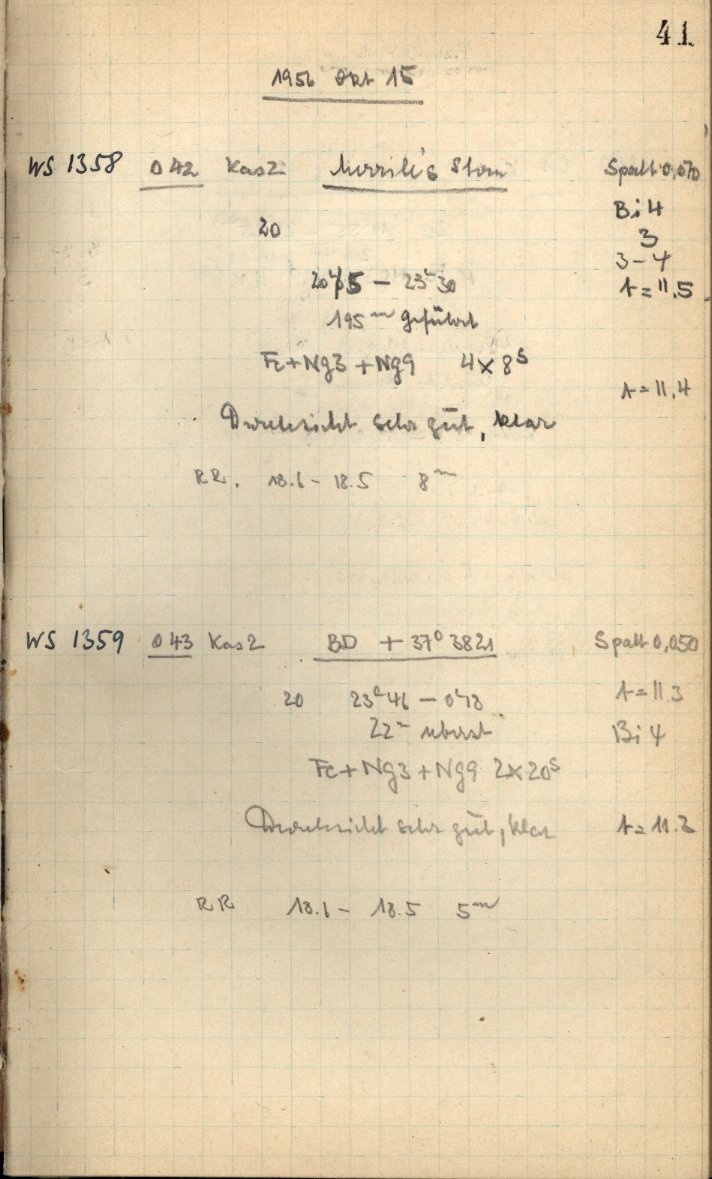 41
1956 Okt 15
WS 1358 042 Kas 2 Merrill's Stern Spalt 0,070
20 Bi 4
3
3-4
20h15 - 23h30 A = 11.5
195m geführt
Fe + Ng3 + Ng9 4x8s
A = 11.4
Durchsicht sehr gut, klar
RR. 18.6 - 18.5 8m
WS 1359 043 Kas 2 BD + 37° 3821 Spalt 0,050
20 23h46 - 0h18 A = 11.3
22m Bi 4
Fe + Ng3 + Ng9 2x20s
Durchsicht sehr gut, klar A = 11.2
RR 18.6 - 18.5 5m